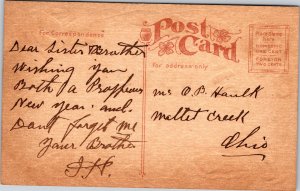 For Correspondence
Post Card
for address only
PLACE STAMP HERE
DOMESTIC
ONE CENT
FOREIGN
TWO CENTS
Dear Sister & Brother
Wishing you
Both a Prosperous
New Year. and
Dont forget me
Your Brother
J.H.
Mr O.P. Haulk
Mellet Creek
Ohio